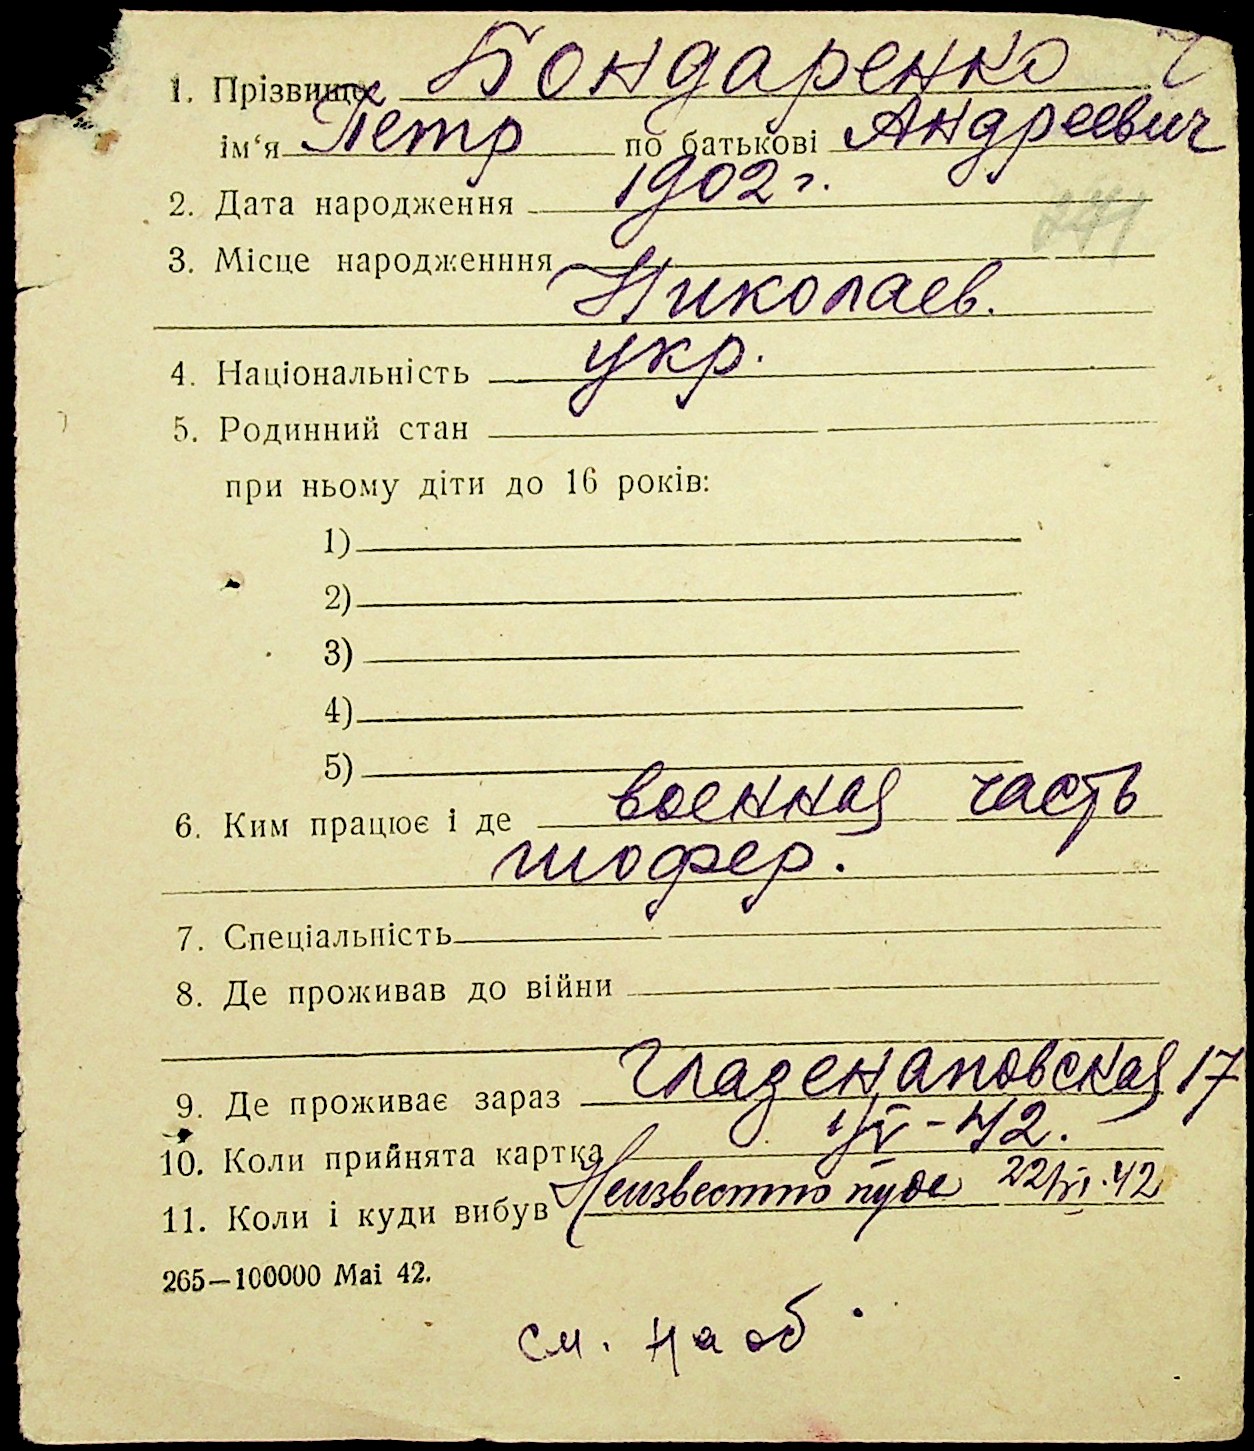 1. Прізвище Бондаренко
ім‘я Петр по батькові Андреевич
2. Дата народження 1902 г.
241
3. Місце народженння
Николаев.
4. Національність укр.
5. Родинний стан
при ньому діти до 16 років:
1)
2)
3)
4)
5)
6. Ким працює і де военная часть
шофер.
7. Спеціальність
8. Де проживав до війни
9. Де проживає зараз 17
10. Коли прийнята картка 1/V-42.
11. Коли і куди вибув Неизвестно куде 22/VI.42
265—100000 Маі 42.
см. на об